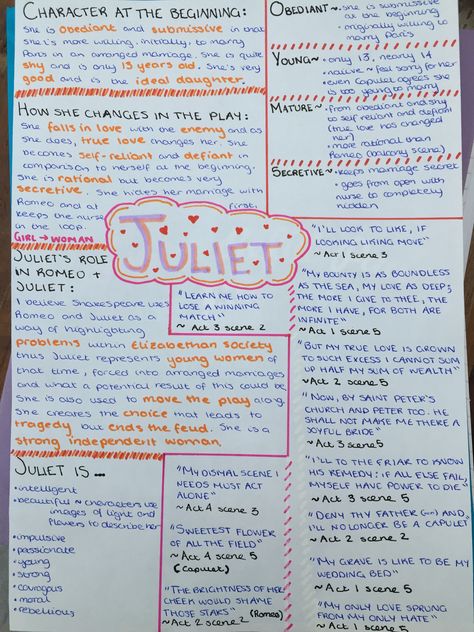 CHARACTER AT THE BEGINNING:
She is obedient and submissive in that
she's more willing, initially, to marry
Paris in an arranged marriage. She is quite
shy and is only 13 years old. She's very
good and is the ideal daughter.
HOW SHE CHANGES IN THE PLAY:
She falls in love with the enemy and as
she does, true love changes her. She
becomes self-reliant and defiant in
comparison to herself at the beginning.
She is rational but becomes very
secretive. She hides her marriage with
Romeo and at first,
keeps the nurse
in the loop.
GIRL → WOMAN
JULIET'S ROLE
IN ROMEO +
JULIET:
I believe Shakespeare uses
Romeo and Juliet as a
way of highlighting
problems within Elizabethan society
thus Juliet represents young women of
that time, forced into arranged marriages
and what a potential result of this could be.
She is also used to move the play along.
She creates the choice that leads to
tragedy but ends the feud. She is a
strong independent woman.
JULIET IS...
•intelligent
•beautiful ~ characters use
images of light and
flowers to describe her
•impulsive
•passionate
•young
•strong
•courageous
•moral
•rebellious
JULIET
OBEDIENT~ •she is submissive
at the beginning
•originally willing to
marry Paris
YOUNG~ •only 13, nearly 14
•naive ~ feel sorry for her
•even Capulet agrees she
is too young to marry
MATURE~ •from obedient and shy
to self reliant and defiant
(true love has changed
her)
•more rational than
Romeo (balcony scene)
SECRETIVE~ •keeps marriage secret
•goes from open with
nurse to completely
hidden
"LEARN ME HOW TO
LOSE A WINNING
MATCH"~
~ Act 3 scene 2
"MY DISMAL SCENE I
NEEDS MUST ACT
ALONE"
~ Act 4 scene 3
"SWEETEST FLOWER
OF ALL THE FIELD"
~ Act 4 scene 5
(Capulet)
"THE BRIGHTNESS OF HER
CHEEK WOULD SHAME
THOSE STARS" (Romeo)
~ Act 2 scene 2
"I'LL LOOK TO LIKE, IF
LOOKING LIKING MOVE"
~ Act 1 scene 3
"MY BOUNTY IS AS BOUNDLESS
AS THE SEA, MY LOVE AS DEEP;
THE MORE I GIVE TO THEE, THE
MORE I HAVE, FOR BOTH ARE
INFINITE"
~ Act 1 scene 5
"BUT MY TRUE LOVE IS GROWN
TO SUCH EXCESS I CANNOT SUM
UP HALF MY SUM OF WEALTH"
~ Act 2 scene 5
"NOW, BY SAINT PETER'S
CHURCH AND PETER TOO. HE
SHALL NOT MAKE ME THERE A
JOYFUL BRIDE"
~ Act 3 scene 5
"I'LL TO THE FRIAR TO KNOW
HIS REMEDY: IF ALL ELSE FAIL,
MYSELF HAVE POWER TO DIE"
~ Act 3 scene 5
"DENY THY FATHER (...) AND,
I'LL NO LONGER BE A CAPULET
~ Act 2 scene 2
"MY GRAVE IS LIKE TO BE MY
WEDDING BED"
~ Act 1 scene 5
"MY ONLY LOVE SPRUNG
FROM MY ONLY HATE"
~ Act 1 scene 5